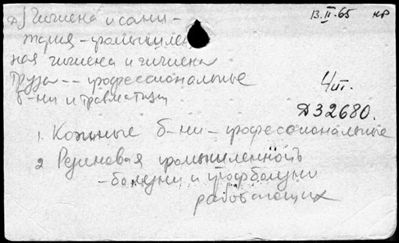 д) Гигиена и сани-
тария - промышлен
ная гигиена и гигиена
труда -- профессиональные
б-ни и травматизм
13.II-65 кр
4 шт.
Д32680.
1. Кожные б-ни - профессиональные
2 Резиновая промышленность
- болезни и профболезни
работающих